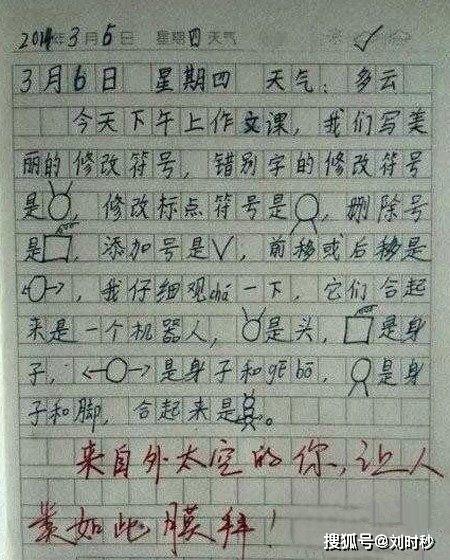 2014年3月6日 星期四天气
3月6日 星期四 天气：多云
今天下午上作文课，我们写美
丽的修改符号，错别字的修改符号
是，修改标点符号是，删除号
是，添加号是√，前移或后移是
，我仔细观chá一下，它们合起
来是一个机器人，是头，是身
子，是身子和gē bō，是身
子和脚，合起来是。
来自外太空的你，让人
类如此膜拜！
搜狐号@刘时秒